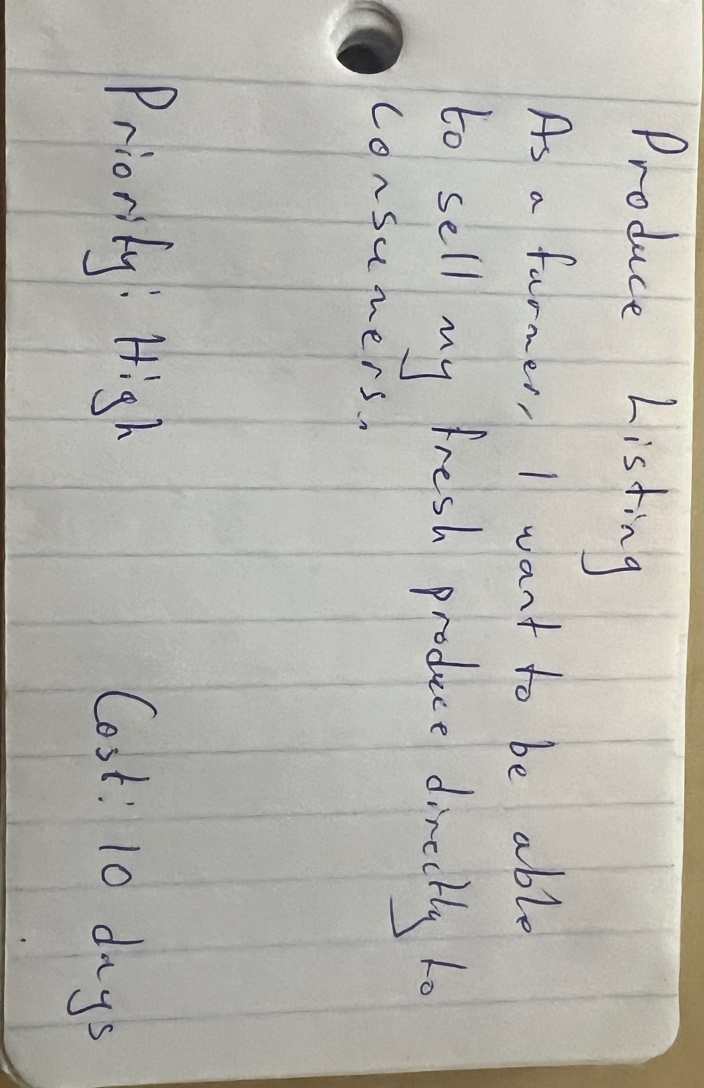 Produce Listing
As a farmer, I want to be able
to sell my fresh produce directly to
consumers.
Priority: High Cost: 10 days